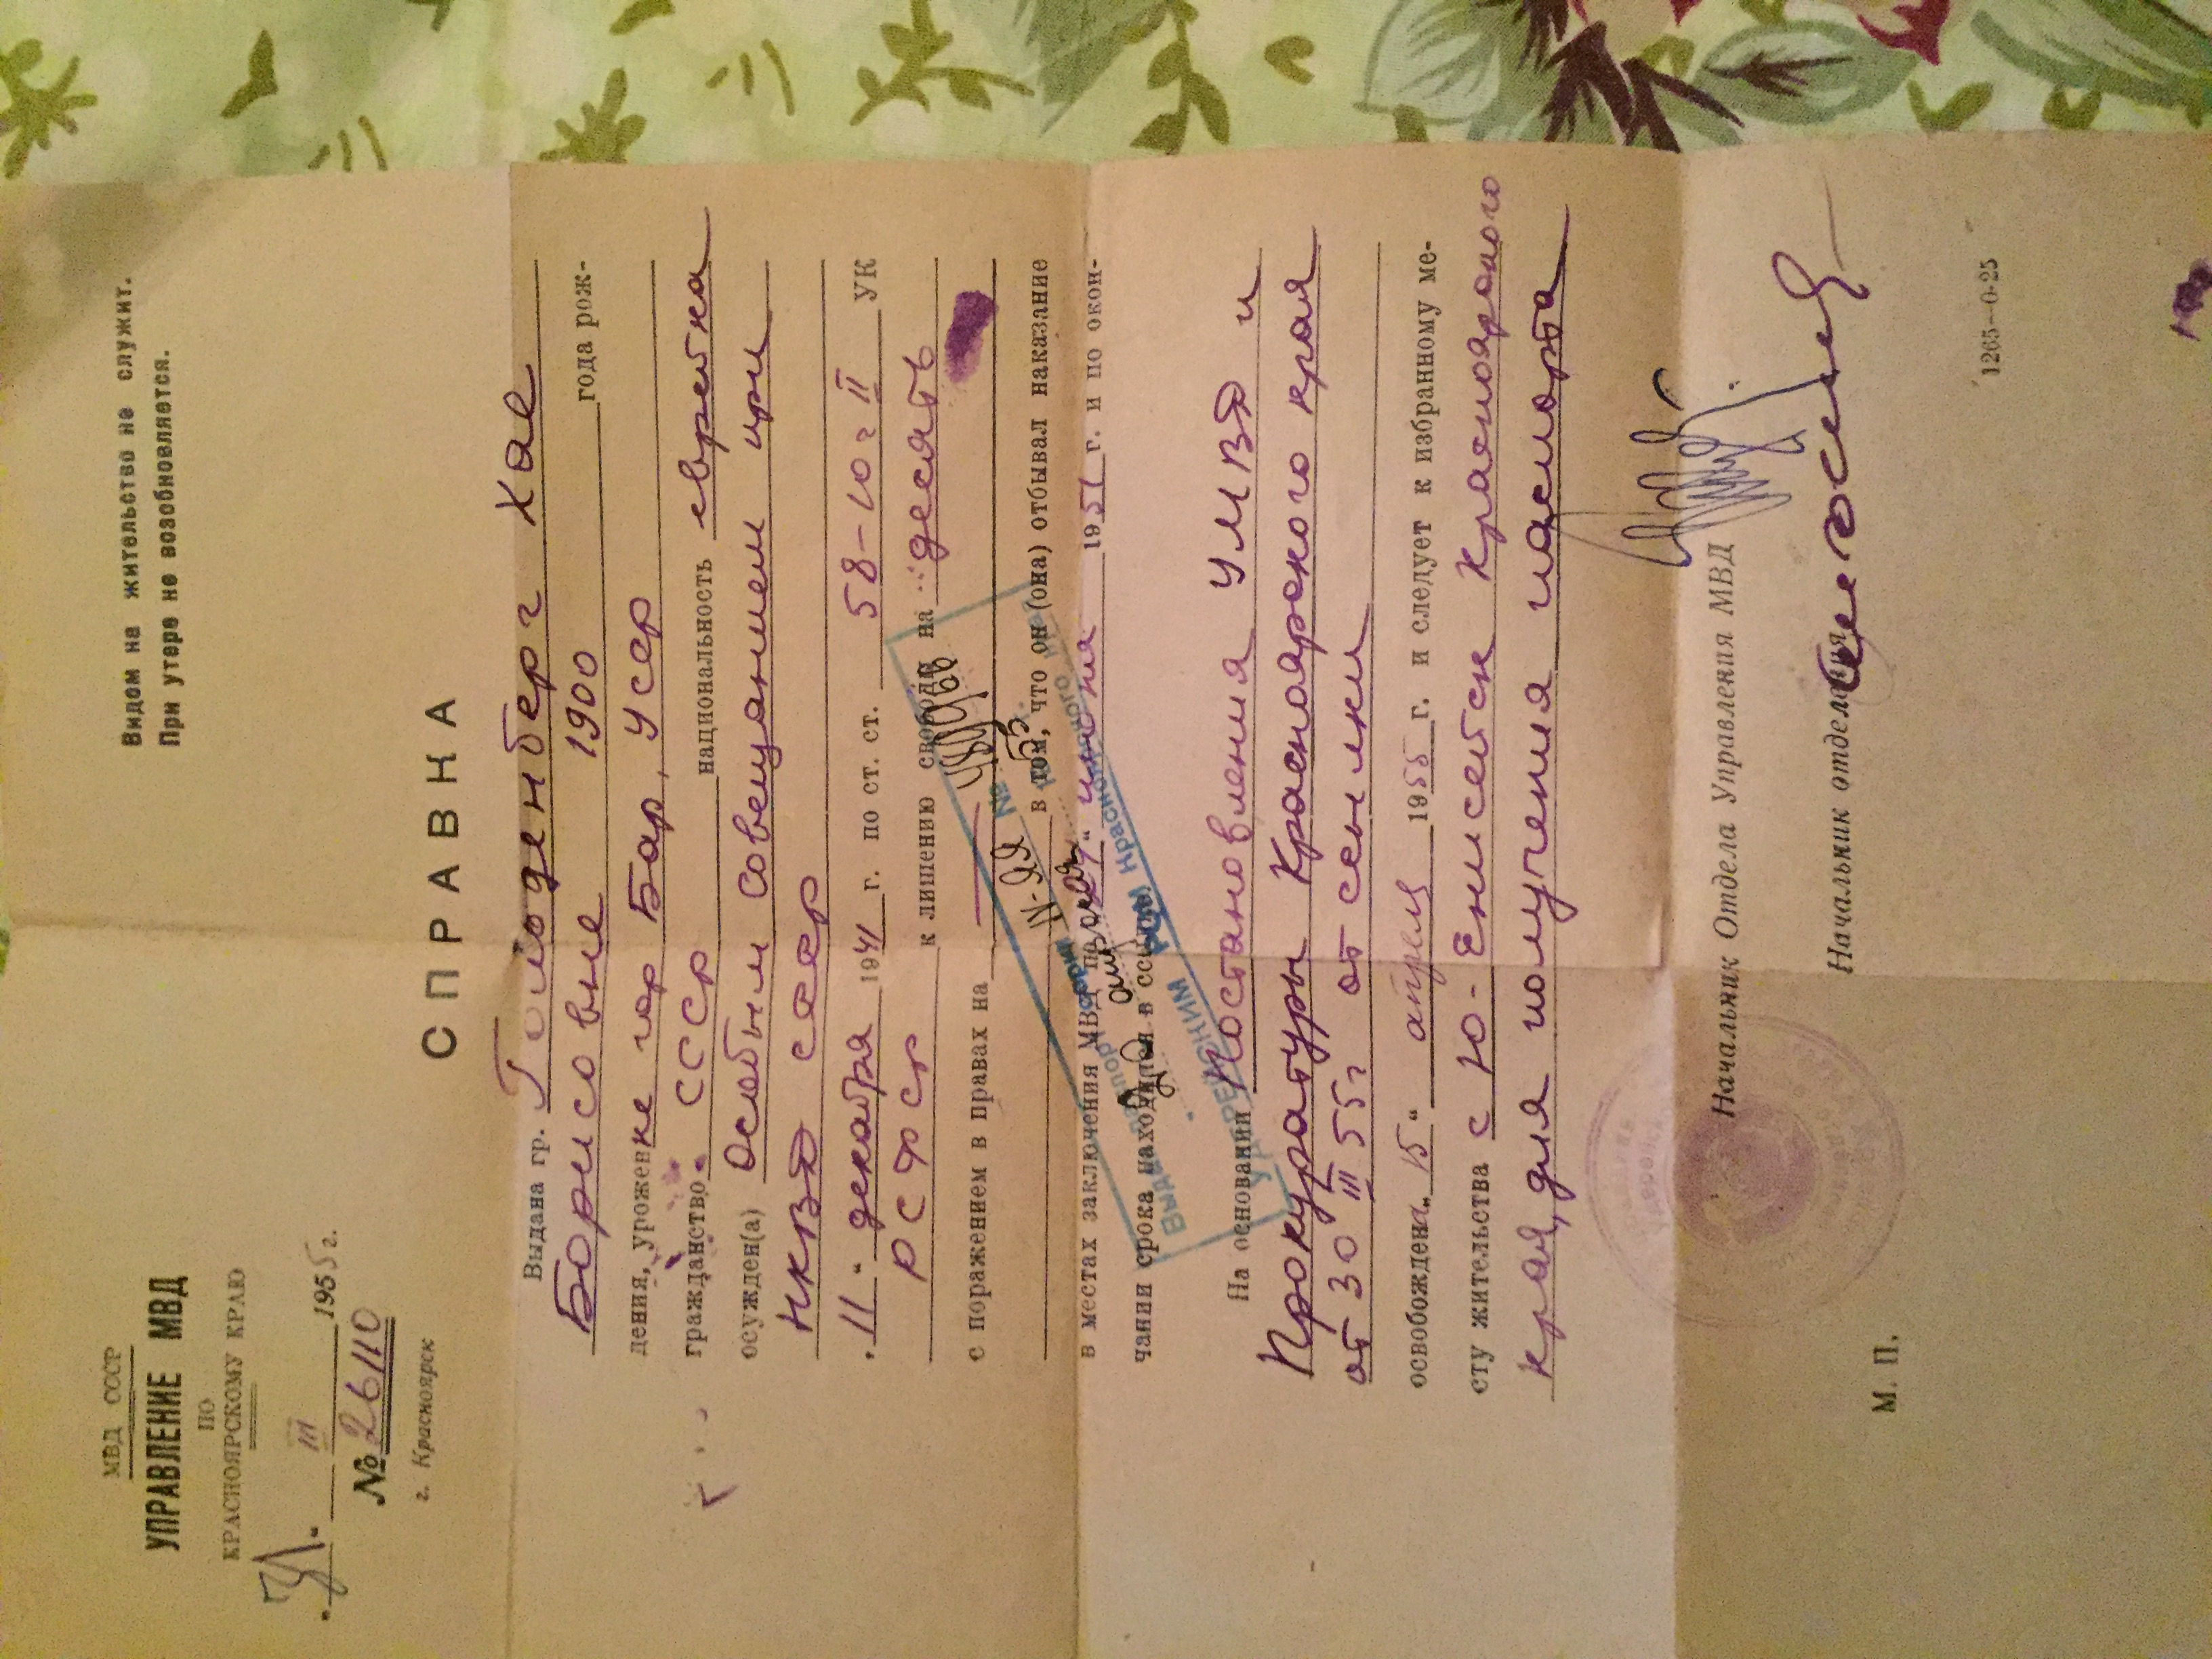 МВД СССР
УПРАВЛЕНИЕ МВД
ПО
КРАСНОЯРСКОМУ КРАЮ
III 1955 г.
№ 26/110
г. Красноярск
Видом на жительство не служит.
При утере не возобновляется.
СПРАВКА
Выдана гр. Гольденберг Хае
Борисовне 1900 года рож-
дения, уроженке гор Бар, Усср
гражданство СССР национальность еврейка
осужден(а) Особым совещанием при
НКВД ссср
„11“ декабря 1941 г. по ст. ст. 58-10 г II УК
РСФСР к лишению свободы на десять
с поражением в правах на
в том, что он (она) отбывал наказание
в местах заключения МВД по июня 1951 г. и по окон-
чании срока находился в ссылке.
Выдан паспорт
IV-ЯЯ № 553
На основании Постановления УМВД и
Прокуратуры Красноярского края
от 30 III 55г от ссылки
освобождена „15“ апреля 1955 г. и следует к избранному ме-
сту жительства с Ю-Енисейск Красноярского
края, для получения паспорта
Начальник Отдела Управления МВД
Начальник отделения
М. П.
1265—0-25